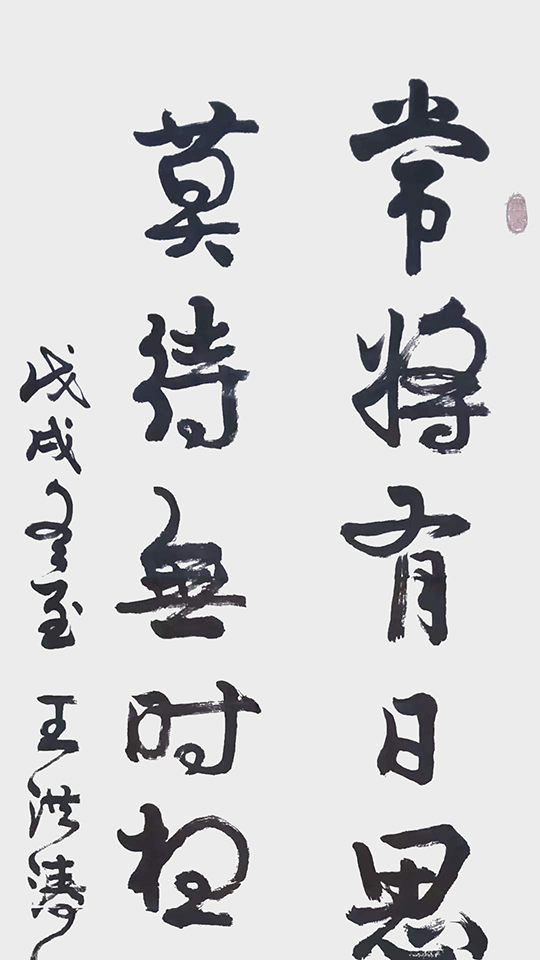 常将有日思
莫待無时想
戊戌冬至 王洪涛